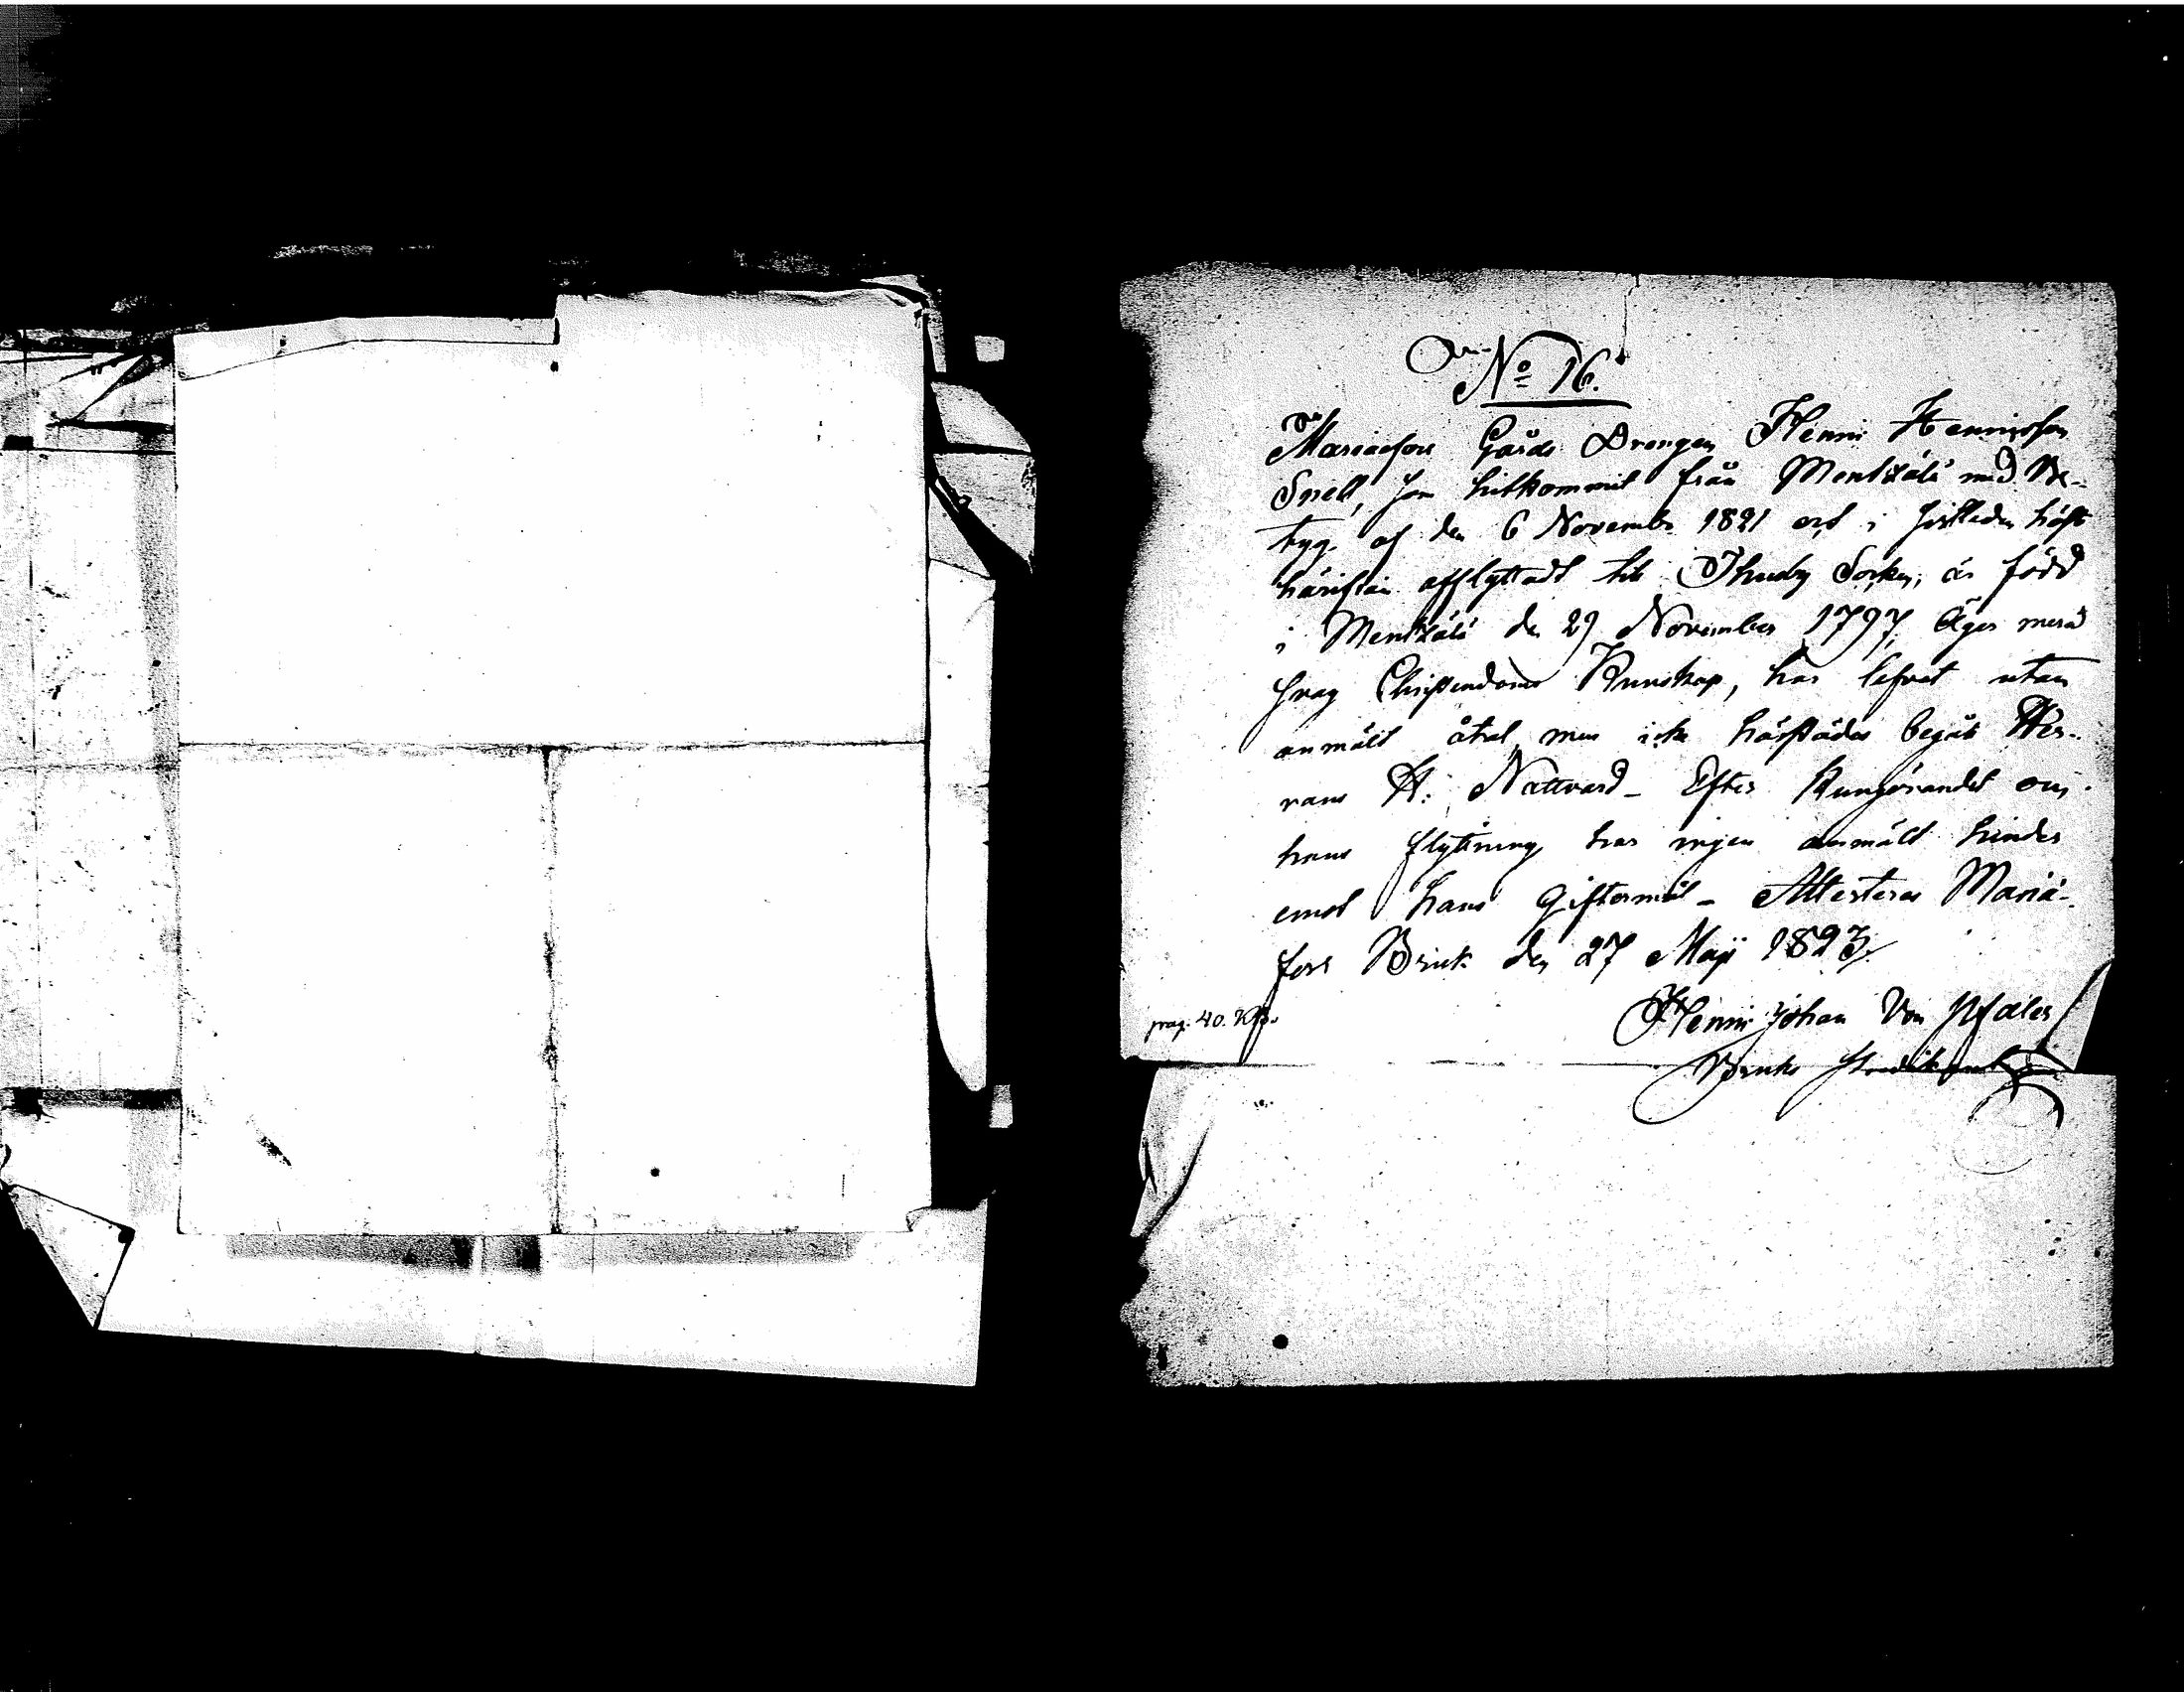 No 16.
Mariæfors Gårds Drengen Henric Henricsson
Snell, som hitkommit från Mentzälä med Be-
tyg af den 6 November 1821 och i sistleden höst
härifrån afflyttadt till Thusby Socken, är född
i Mentzälä den 29 November 1797, Äger mera
svag Christendoms Kunskap, har lefvat utan
anmält åtal, men icke härstädes begått Her-
rans H: Nattvard – Efter Kungörandet om
hans flyttning har ingen anmält hinder
emot hans Giftermål – Attesteras Mariæ-
fors Bruk den 27 Maji 1823
Henric Johan Von Pfaler
Bruks Predikant
pag. 40.